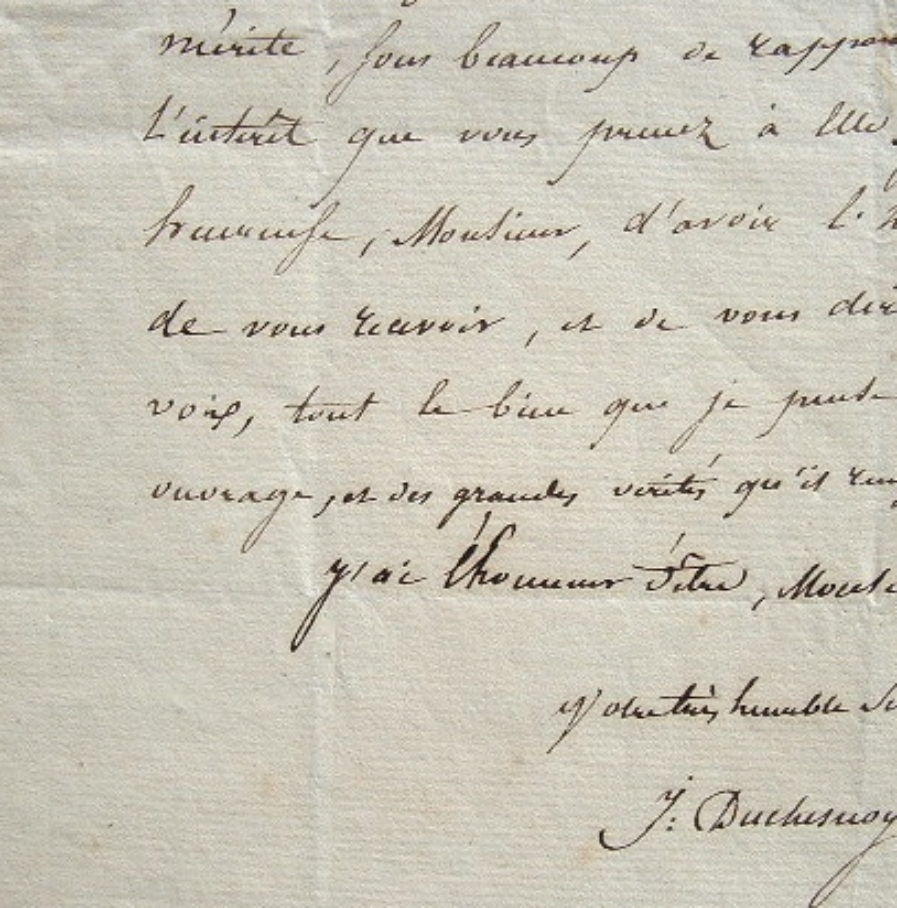 mérite, sous beaucoup de rappor
L'intérêt que vous prenez à Elle,
heureuse, Monsieur, d'avoir l'h
de vous recevoir, et de vous dir
voix, tout le bien que je pense
ouvrage, et des grandes vérités qu'il ren
J'ai l'honneur d'être, Monsi
Votre très humble Se
J: Duchesnoy